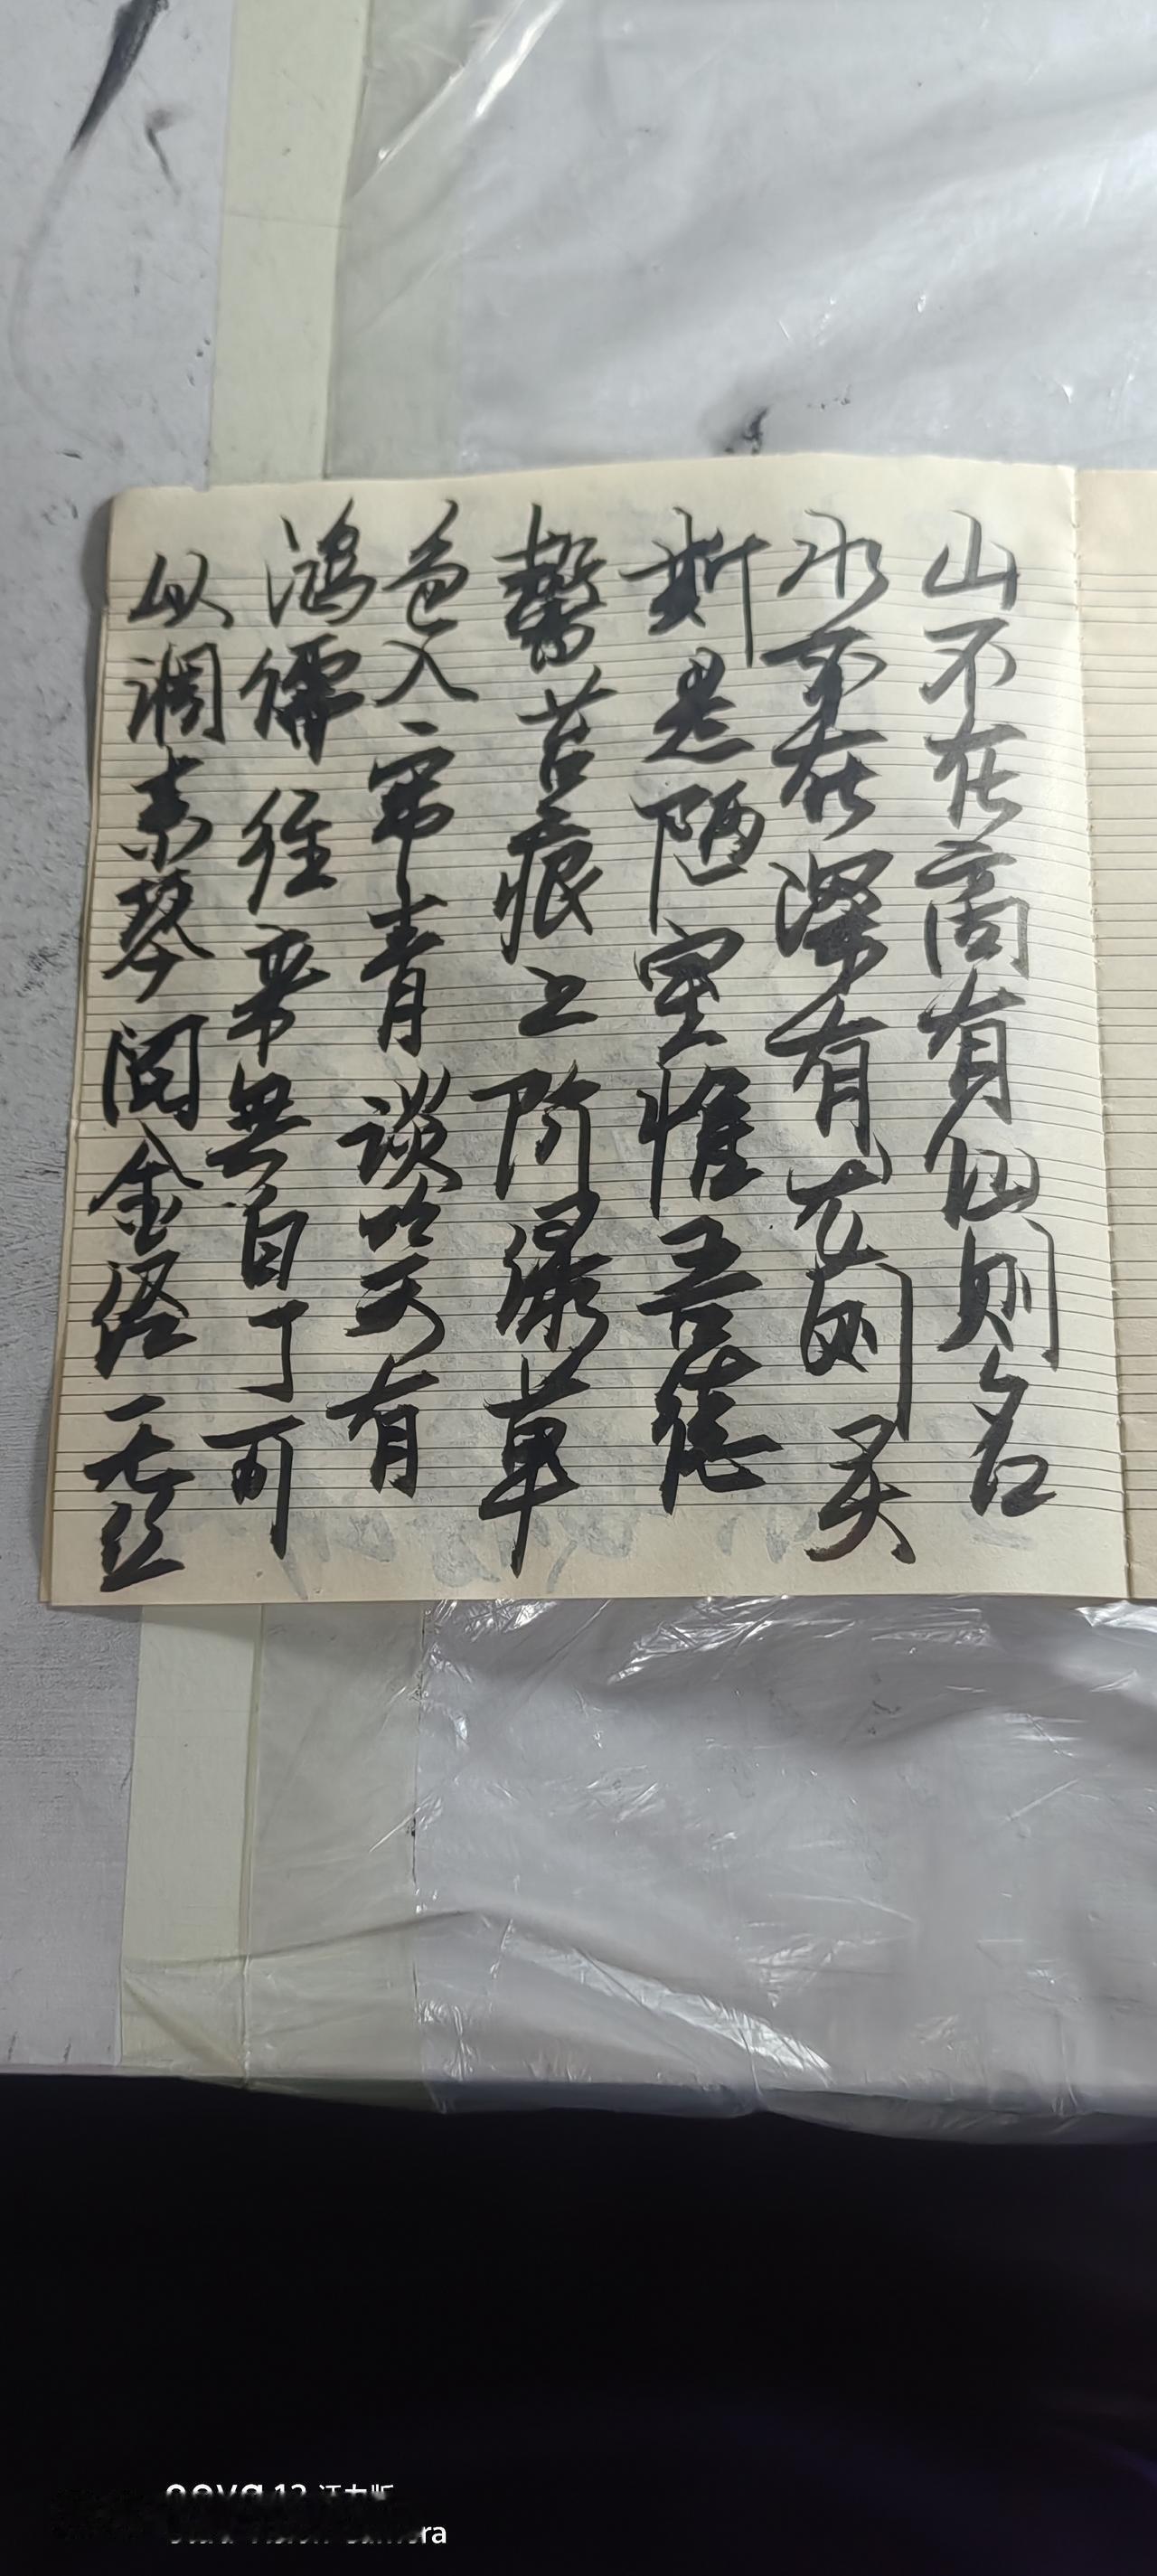 山不在高有仙则名
水不在深有龙则灵
斯是陋室惟吾德
馨苔痕上阶绿草
色入帘青谈笑有
鸿儒往来無白丁可
以调素琴阅金经无丝
nova 12 活力版